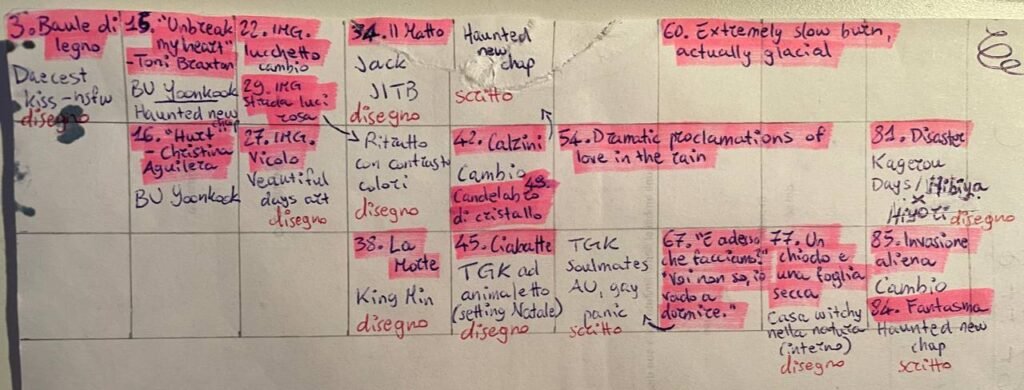 3. Baule di
legno
Daecest
kiss-nsfw
disegno
15. "Unbreak
my heart"
-Toni Braxton
BU Yoonkook
Haunted new
chap
16. "Hurt"
Christina
Aguilera
BU Yoonkook
22. IMG.
lucchetto
cambio
29. IMG
strada luci
rosa
27. IMG.
Vicolo
Veautiful
days art
disegno
34. Il Matto
Jack
JITB
disegno
Ritratto
con contrasto
colori
disegno
38. La
Morte
King Min
disegno
Haunted
new
chap
scritto
42. Calzini
Cambio
49.
Candelabro
di cristallo
45. Ciabatte
TGK ad
animaletto
(setting Natale)
disegno
TGK
soulmates
AU, gay
panic
scritto
54. Dramatic proclamations of
love in the rain
60. Extremely slow burn,
actually glacial
67. "E adesso
che facciamo?"
"Voi non so, io
vado a
dormire."
77. Un
chiodo e
una foglia
secca
Casa witchy
nella natura
(interno)
disegno
81. Disaster
Kagerou
Days/Hibiya
x
Hiyori disegno
85. Invasione
aliena
Cambio
84. Fantasma
Haunted new
chap
scritto